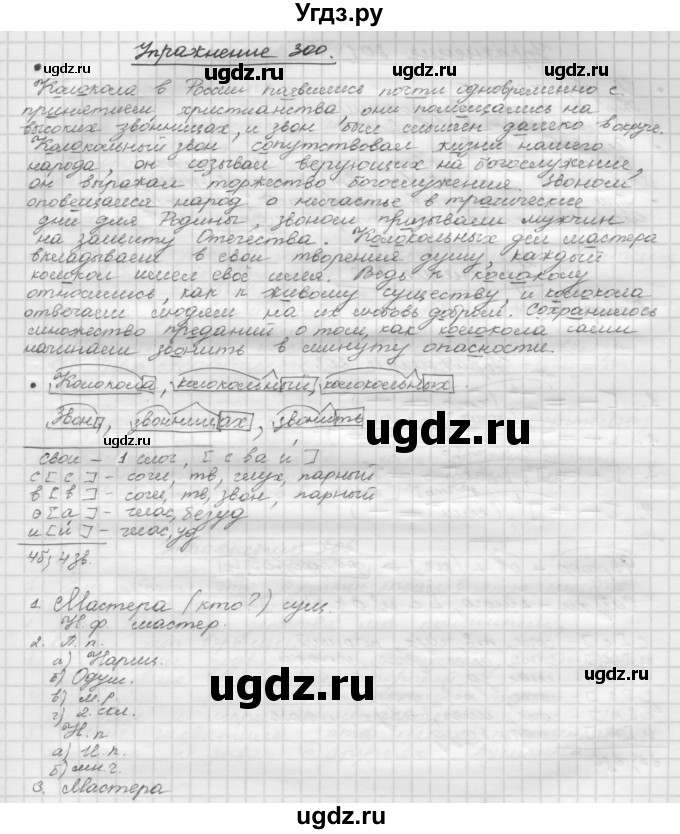 Угдз.ру
Упражнение 300.
Колокола в России появились почти одновременно с
принятием христианства, они помещались на
высоких звонницах, и звон был слышен далеко вокруг.
Колокольный звон сопутствовал жизни нашего
народа, он созывал верующих на богослужение,
он выражал торжество богослужения. Звоном
оповещался народ о несчастье в трагические
дни для Родины, звоном призывали мужчин
на защиту Отечества. Колокольных дел мастера
вкладывали в свои творения душу, каждый
колокол имел своё имя. Ведь к колоколу
относились, как к живому существу, и колокола
отвечали людям на их любовь добром. Сохранилось
множество преданий о том, как колокола сами
начинали звонить в минуту опасности.
• Колокола, колокольный, колокольных.
Звон, звонницах, звонить
свои – 1 слог, [с ва и]
с [с] – согл, тв, глух, парный
в [в] – согл, тв, звон, парный
о [а] – глас, безуд
и [й] – глас, уд
4б, 4зв.
1. Мастера (кто?) сущ
Н.ф мастер.
2. П.п.
а) Нариц.
б) Одуш.
в) м.р.
г) 2. скл.
Н.п
а) И.п.
б) мн.ч.
3. Мастера
ugdz.ru
ugdz.ru
ugdz.ru
ugdz.ru
ugdz.ru
ugdz.ru
ugdz.ru
ugdz.ru
ugdz.ru
ugdz.ru
ugdz.ru
ugdz.ru
ugdz.ru